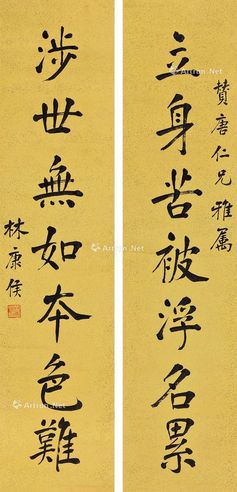 贊唐仁兄雅屬
立身苦被浮名累
涉世無如本色難
林康侯
Artron.Net
Artron.Net
Artron.Net
Artron.Net